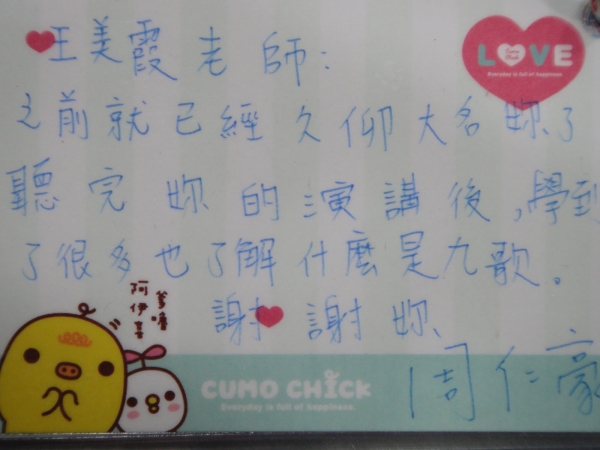 王美霞老師:
LOVE
Everyday is full of happiness.
之前就已經久仰大名妳了
聽完妳的演講後,學到
了很多也了解什麼是九歌。
謝謝妳
阿伊喜
爹嚕
CUMO CHICK
Everyday is full of happiness.
周仁豪